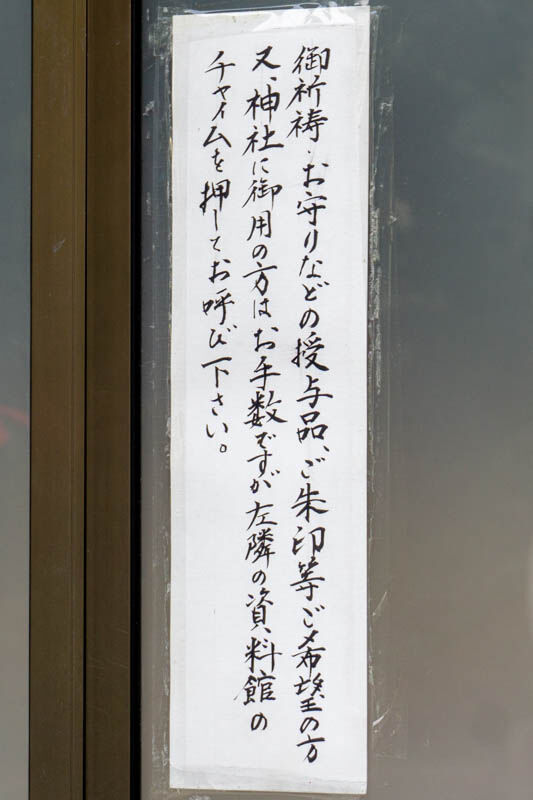 御祈祷・お守りなどの授与品、ご朱印等ご希望の方
又、神社に御用の方はお手数ですが左隣の資料館の
チャイムを押してお呼び下さい。